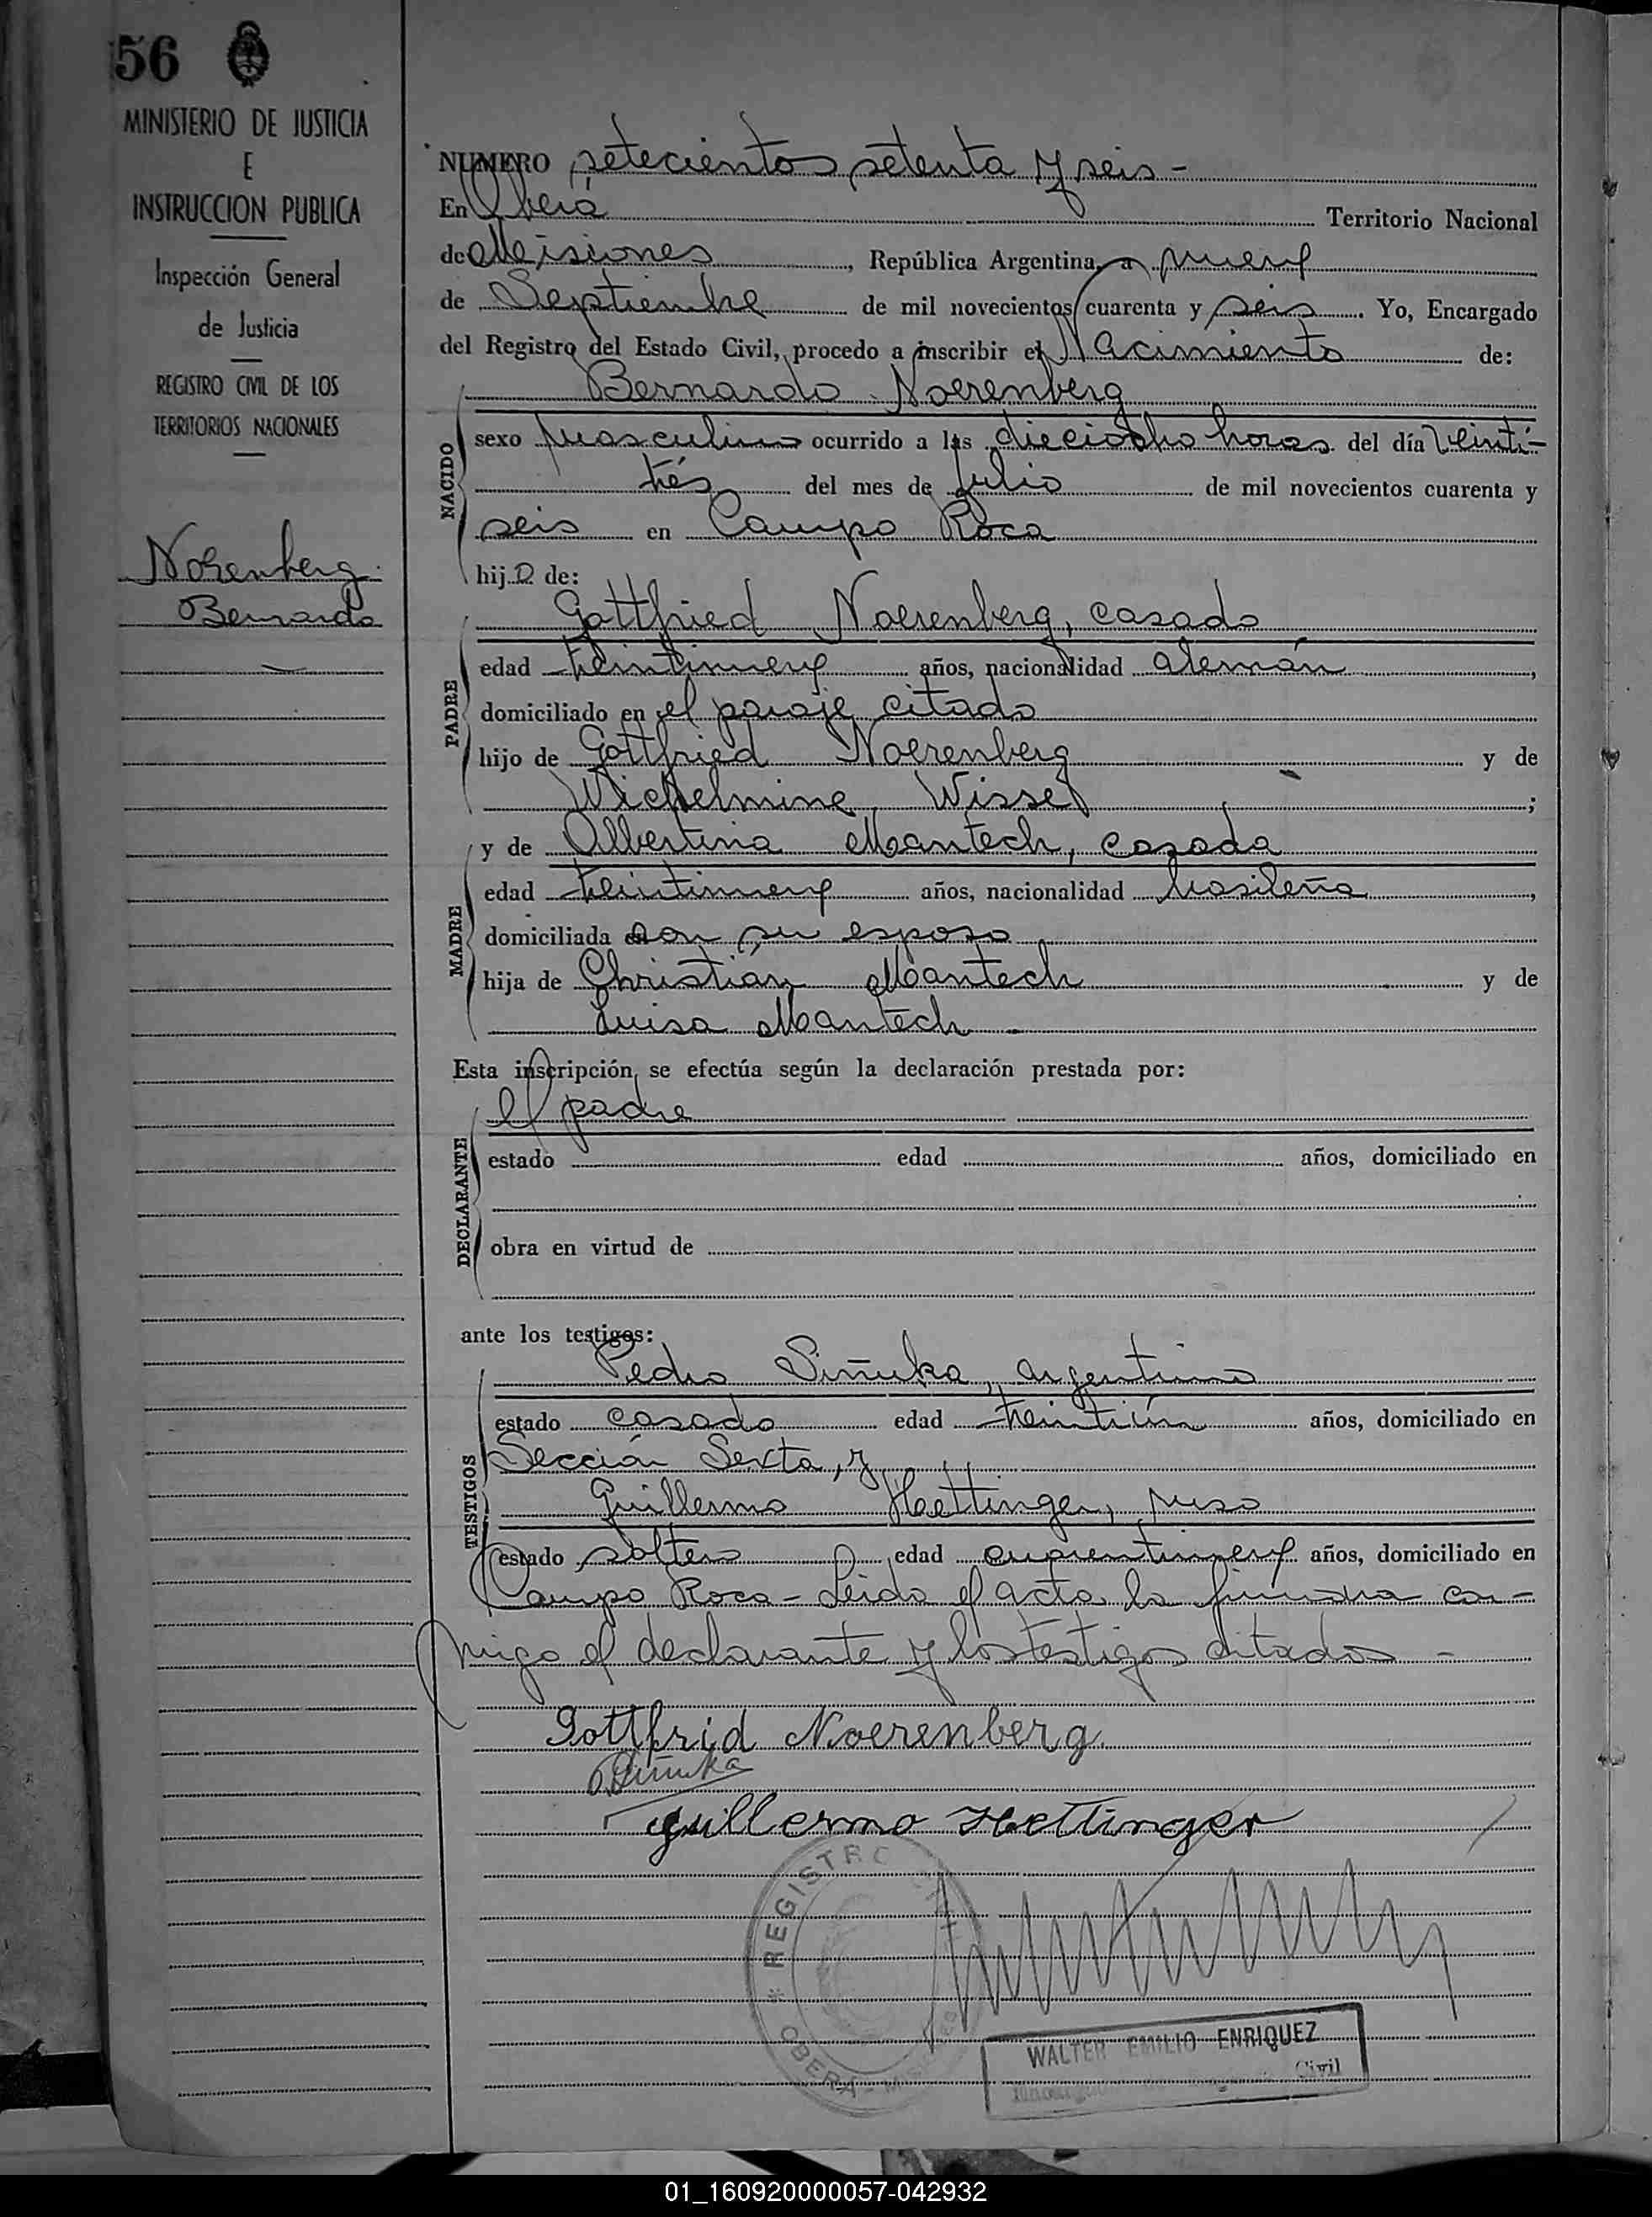 56
MINISTERIO DE JUSTICIA
E
INSTRUCCION PUBLICA
Inspección General
de Justicia
REGISTRO CIVIL DE LOS
TERRITORIOS NACIONALES
Noerenberg
Bernardo
NUMERO setecientos setenta y seis -
En Oberá Territorio Nacional
de Misiones, República Argentina, a nueve
de Septiembre de mil novecientos cuarenta y seis. Yo, Encargado
del Registro del Estado Civil, procedo a inscribir el Nacimiento de:
Bernardo Noerenberg
NACIDO
sexo masculino ocurrido a las dieciocho horas del día veinti-
trés del mes de Julio de mil novecientos cuarenta y
seis en Campo Roca
hijo de:
Gottfried Noerenberg, casado
PADRE
edad treintinueve años, nacionalidad alemán,
domiciliado en el paraje citado
hijo de Gottfried Noerenberg y de
Wichelmine Wissel;
y de Albertina Mantech, casada
MADRE
edad treintinueve años, nacionalidad brasileña,
domiciliada con su esposo
hija de Christián Mantech y de
Luisa Mantech -
Esta inscripción se efectúa según la declaración prestada por:
el padre
DECLARANTE
estado edad años, domiciliado en
obra en virtud de
ante los testigos:
Pedro Siñuka, argentino
TESTIGOS
estado casado edad treintiún años, domiciliado en
Sección Sexta, y
Guillermo Hettinger, ruso
estado soltero edad cuarentinueve años, domiciliado en
Campo Roca - Leida el acta la firman con-
migo el declarante y los testigos citados -
Gottfrid Noerenberg
PSiñuka
Guillermo Hettinger
REGISTRO
OBERA -
WALTER EMILIO ENRIQUEZ
Civil
01_160920000057-042932